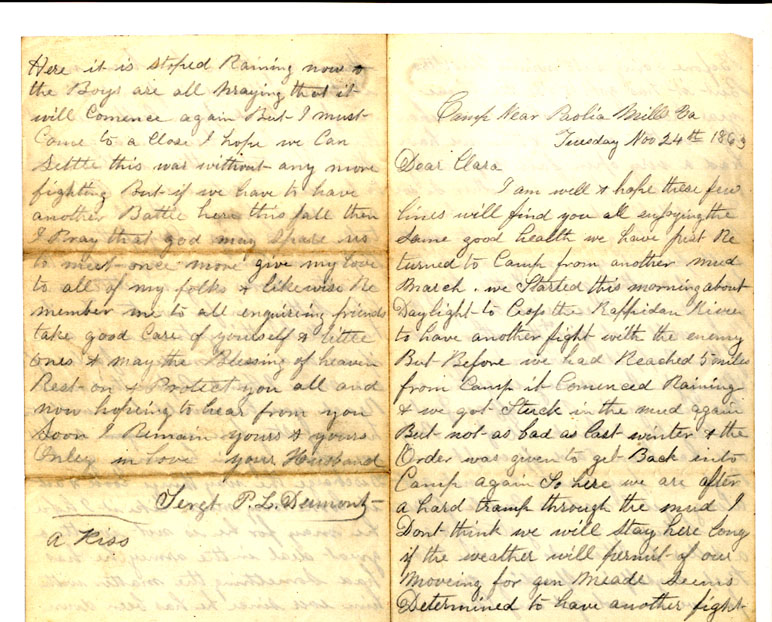 Camp Near Paolia Mills Va
Tuesday Nov 24th 1863
Dear Clara
I am well & hope these few
lines will find you all enjoying the
Same good health we have just Re
turned to Camp from another mud
March. we Started this morning about
Daylight to Cross the Rappidan River
to have another fight with the enemy
But Before we had Reached 5 miles
from Camp it Comenced Raining
& we got Stuck in the mud again
But not as bad as last winter & the
Order was given to get Back into
Camp again So here we are after
a hard tramp through the mud I
Dont think we will stay here long
if the weather will permit of our
Moveing for gen Meade Seems
Determined to have another fight
Here it is stoped Raining now &
the Boys are all praying that it
will Comence again But I must
Come to a Close I hope we Can
Settle this war without any more
fighting But if we have to have
another Battle here this fall then
I Pray that god may Spare us
to meet once more give my love
to all of my folks & likewise Re
member me to all enquiring friends
take good Care of yourself & little
ones & may the Blessing of heaven
Rest on & Protect you all and
now hopeing to hear from you
Soon I Remain yours & yours
Onley in Love your Husband
Sergt P. L. Dumont
A Kiss